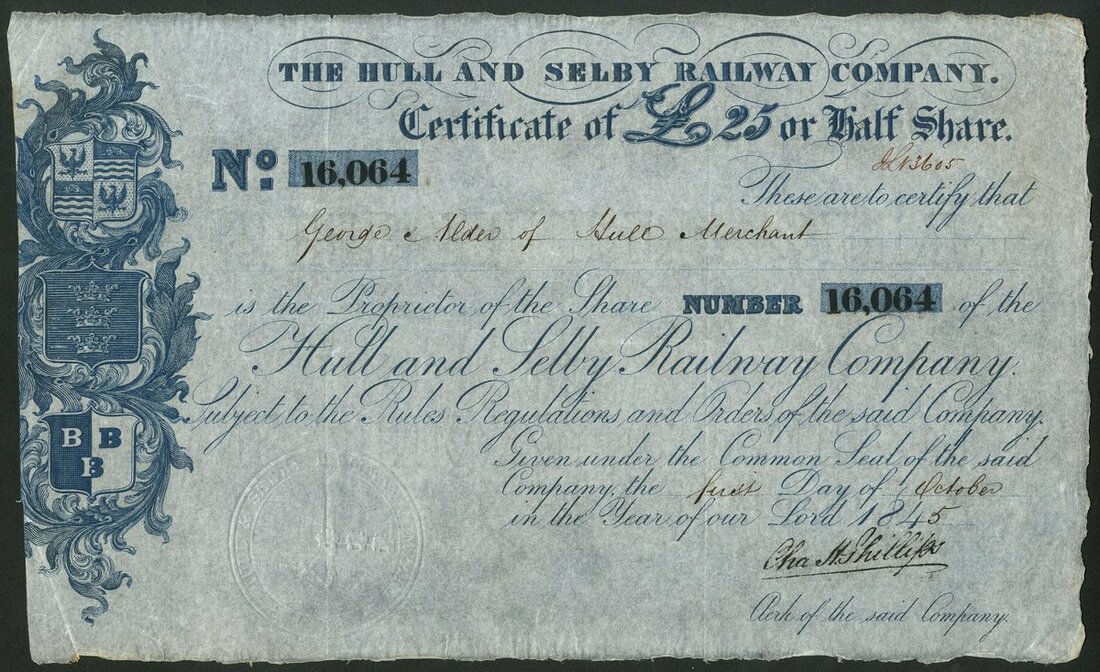 THE HULL AND SELBY RAILWAY COMPANY.
Certificate of £25 or Half Share.
No. 16,064
These are to certify that
George Alder of Hull Merchant
is the Proprietor of the Share NUMBER 16,064 of the
Hull and Selby Railway Company.
Subject to the Rules Regulations and Orders of the said Company.
B B
B
Given under the Common Seal of the said
Company, the first Day of October
in the Year of our Lord 1845
Cha H Phillips
Clerk of the said Company.